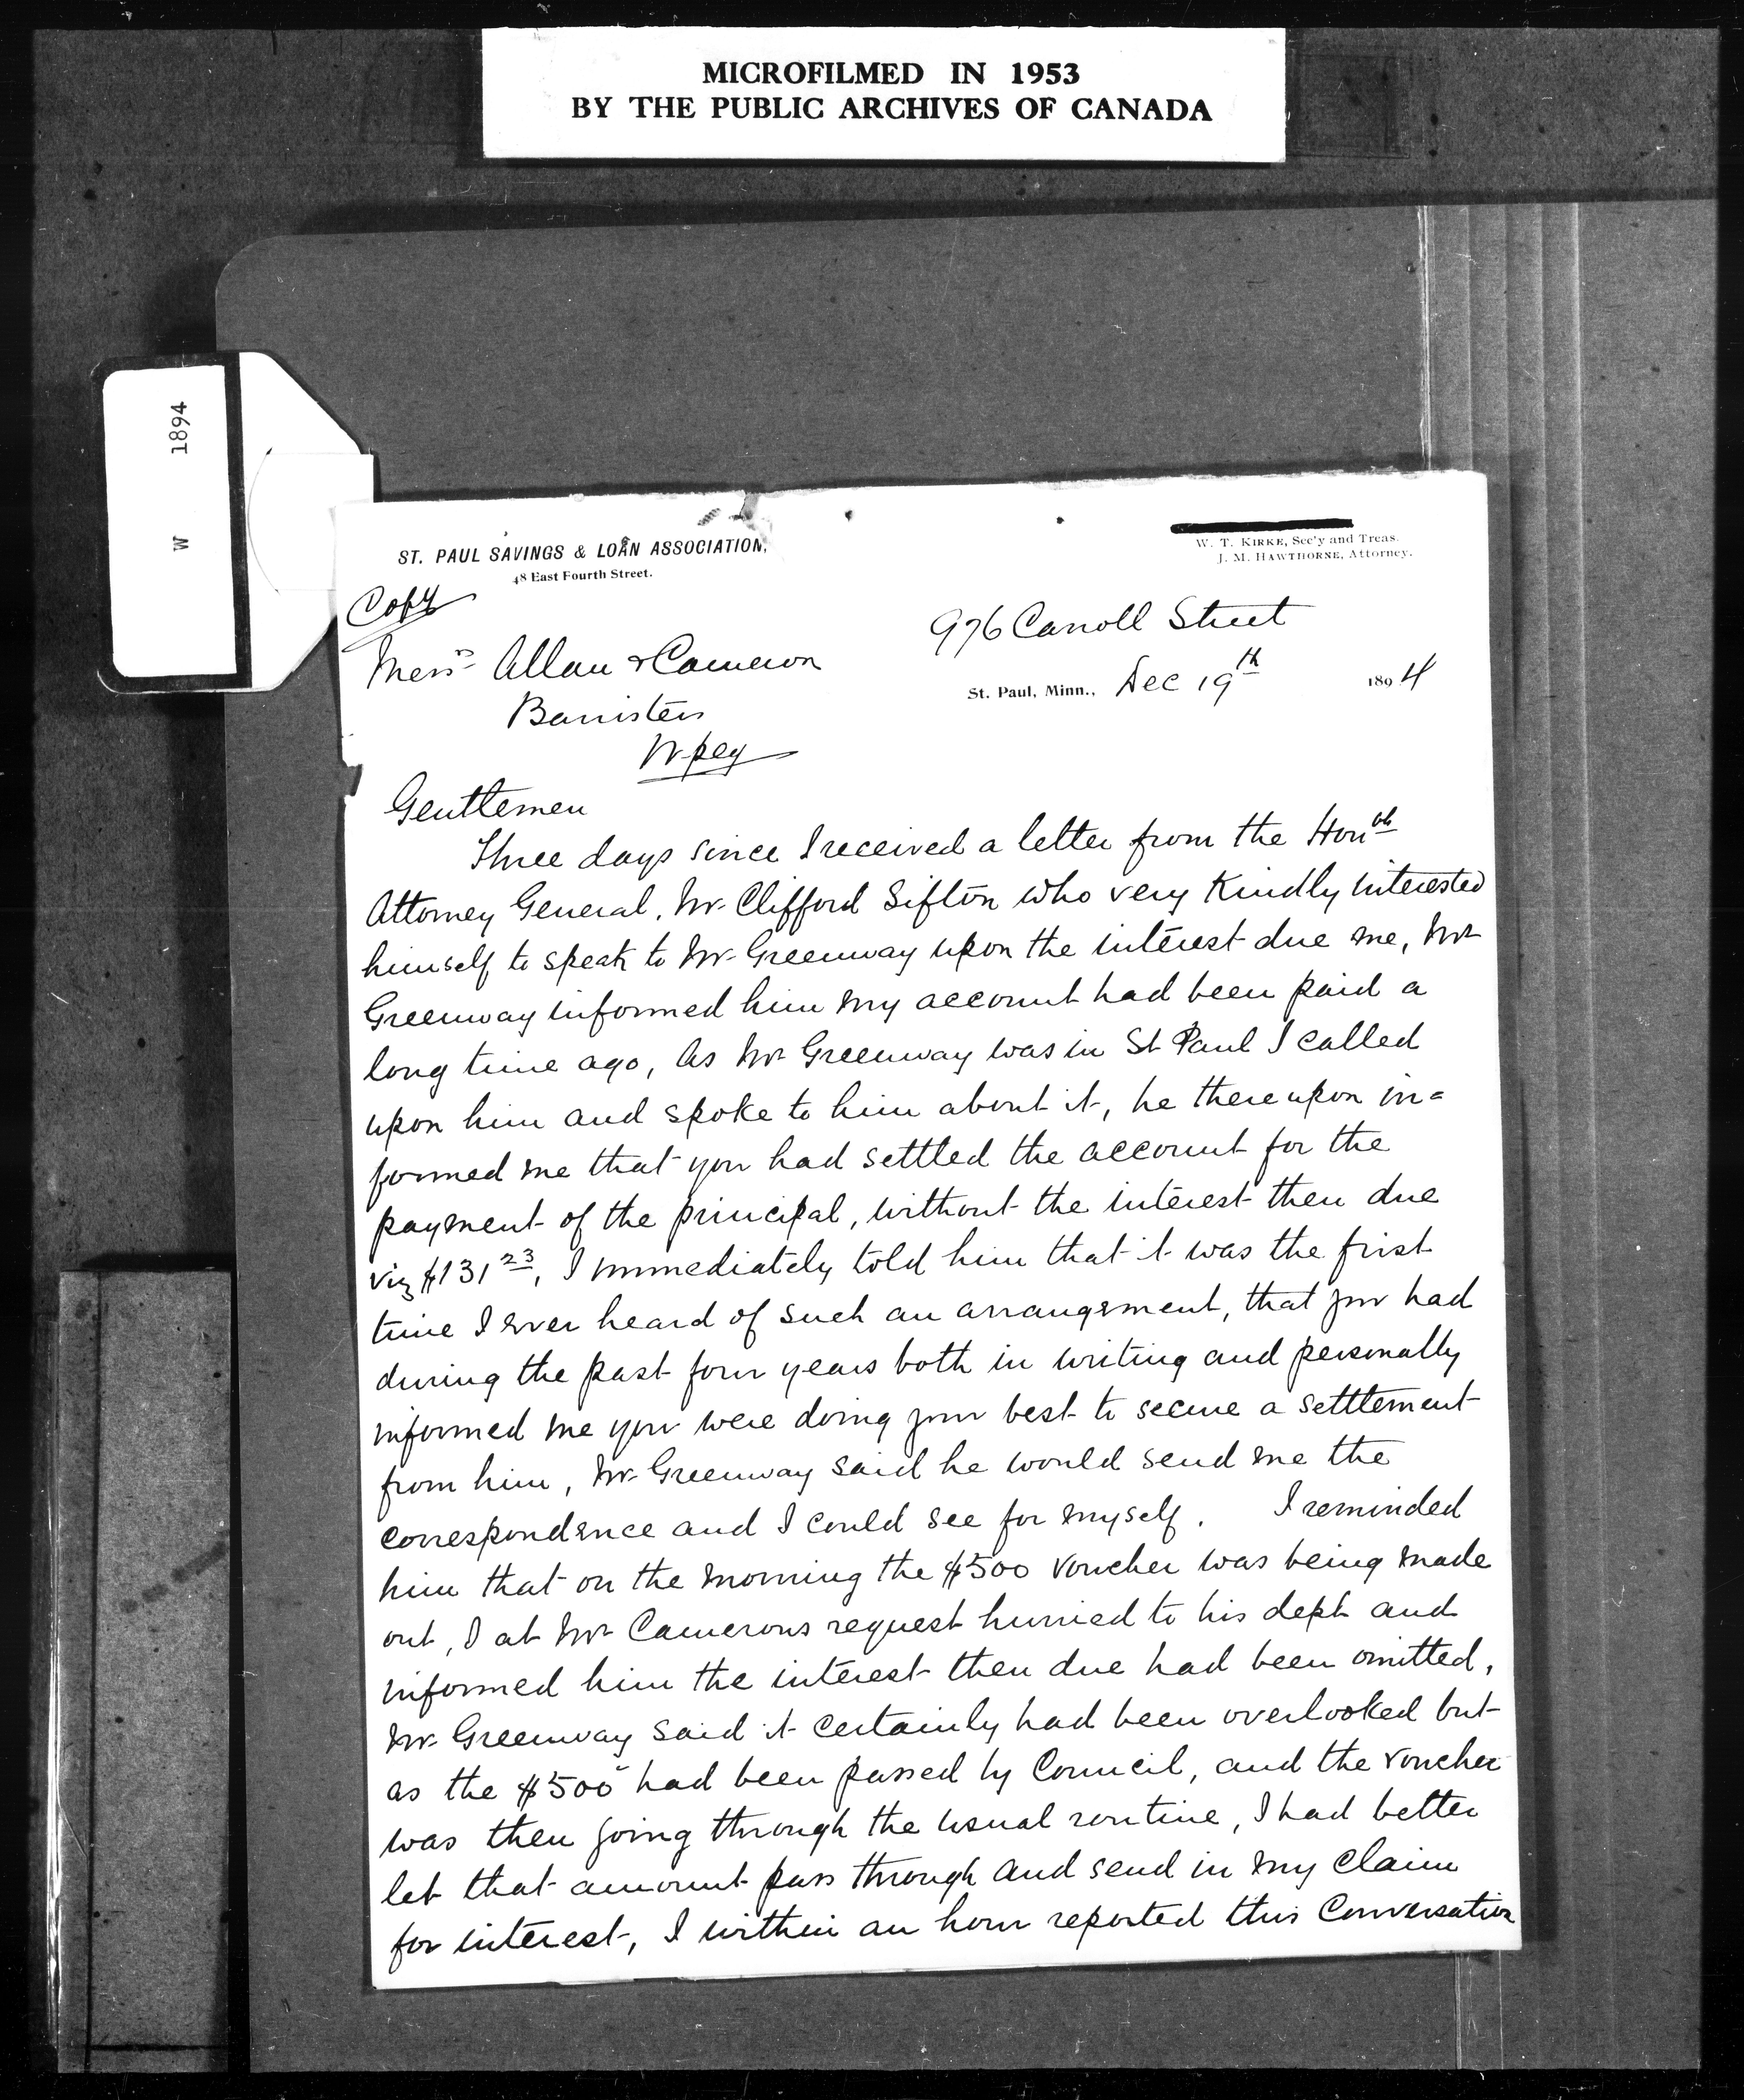 MICROFILMED IN 1953
BY THE PUBLIC ARCHIVES OF CANADA
W 1894
ST. PAUL SAVINGS & LOAN ASSOCIATION,
48 East Fourth Street.
W. T. KIRKE, Sec'y and Treas.
J. M. HAWTHORNE, Attorney.
Copy
976 Carroll Street
Messrs Allan & Cameron
St. Paul, Minn., Dec 19th 1894
Barristers
Wpeg
Gentlemen
Three days since I received a letter from the Honble
Attorney General, Mr Clifford Sifton who very Kindly interested
himself to speak to Mr Greenway upon the interest due me, Mr
Greenway informed him my account had been paid a
long time ago, As Mr Greenway was in St Paul I called
upon him and spoke to him about it, he thereupon in=
formed me that you had settled the account for the
payment of the principal, without the interest then due
viz $131 23, I immediately told him that it was the first
time I ever heard of such an arrangement, that you had
during the past four years both in writing and personally
informed me you were doing your best to secure a settlement
from him, Mr Greenway said he would send me the
correspondence and I could see for myself. I reminded
him that on the morning the $500 voucher was being made
out, I at Mr Camerons request hurried to his dept and
informed him the interest then due had been omitted,
Mr Greenway said it certainly had been overlooked but
as the $500 had been passed by Council, and the voucher
was then going through the usual routine, I had better
let that amount pass through and send in my claim
for interest, I within an hour reported this Conversation